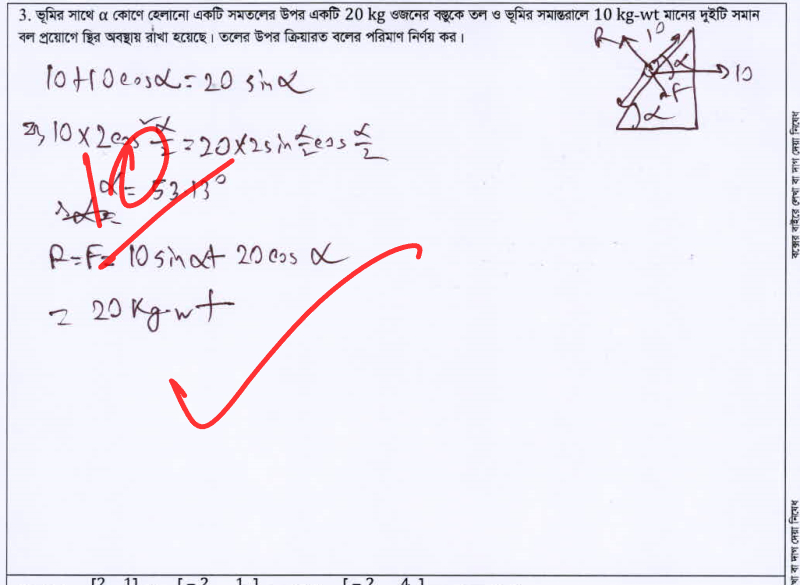 3. ভূমির সাথে α কোণে হেলানো একটি সমতলের উপর একটি 20 kg ওজনের বস্তুকে তল ও ভূমির সমান্তরালে 10 kg-wt মানের দুইটি সমান
বল প্রয়োগে স্থির অবস্থায় রাখা হয়েছে। তলের উপর ক্রিয়ারত বলের পরিমাণ নির্ণয় কর।
R 10 α 10 F α
10+10cosα = 20 sinα
বা, 10×2cos²α/2 = 20×2sinα/2 cosα/2
α = 53.13°
10
R=F= 10sinα+ 20cosα
= 20 kg-wt
বক্সের বাইরে লেখা বা দাগ দেয়া নিষেধ
বা দাগ দেয়া নিষেধ
[2 1] [-2 1] [-2 4]